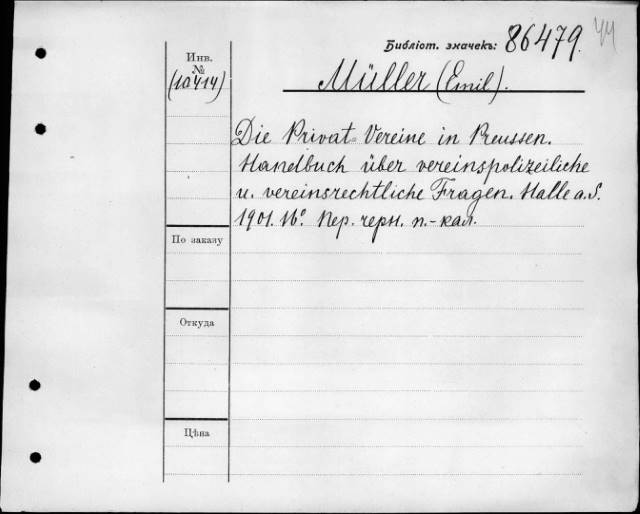 Библіот. значекъ: 86479. 44
Инв.
№
(10414)
Müller (Emil).
Die Privat-Vereine in Preussen.
Handbuch über vereinspolizeiliche
u. vereinsrechtliche Fragen. Halle a. S.
1901. 16º. Пер. черн. п.-кал.
По заказу
Откуда
Цѣна